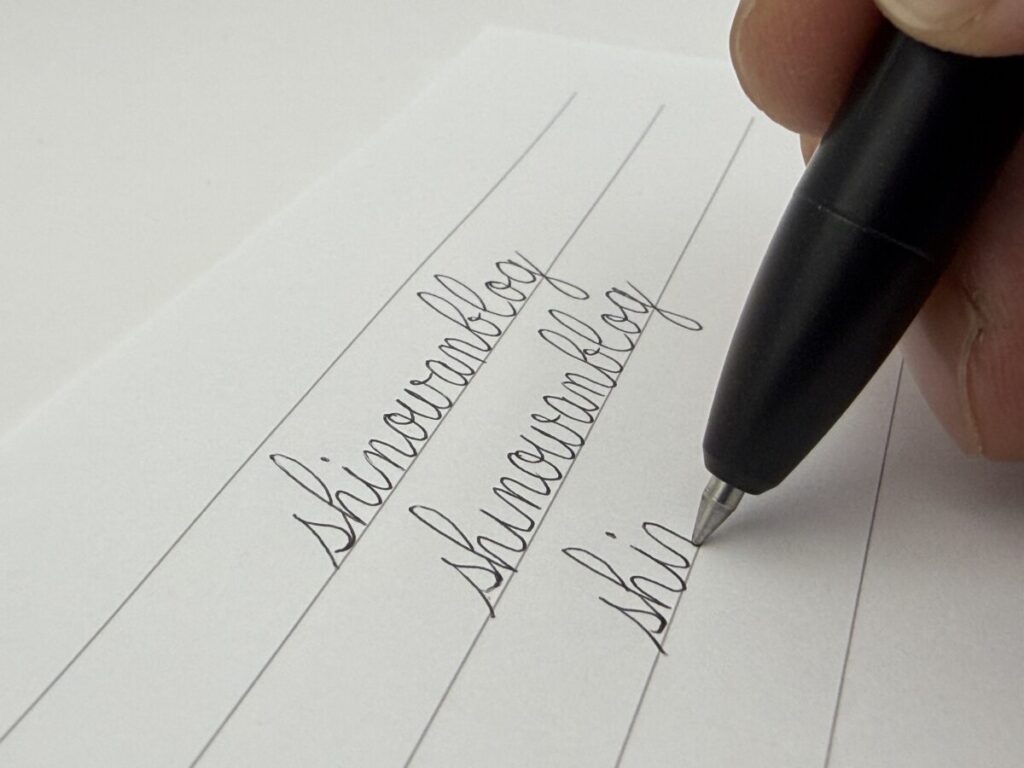 shinowanblog
shinowanblog
shin